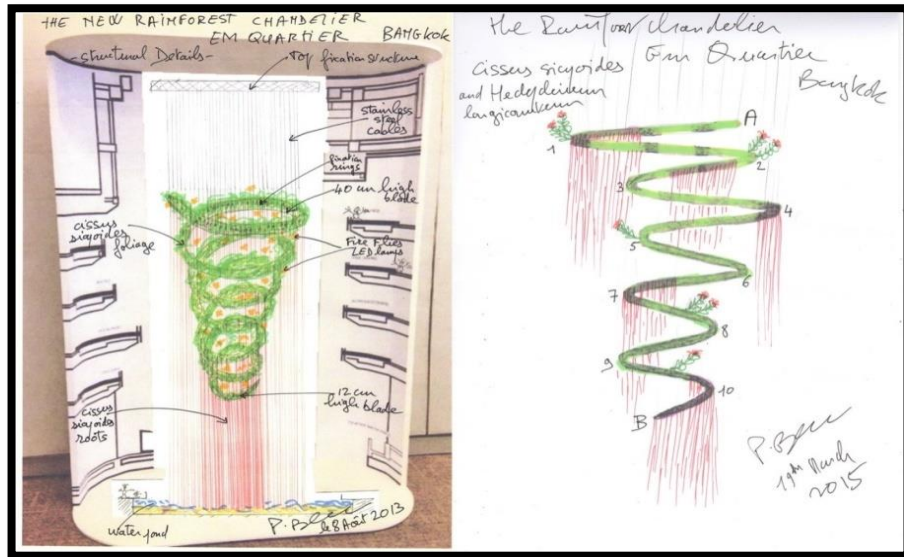 THE NEW RAINFOREST CHANDELIER
EM QUARTIER BANGKOK
- Structural Details -
Top fixation structure
stainless
steel
cables
fixation
rings
40 cm high
blade
cissus
sicyoides
foliage
Fire Flies
LED lamps
12 cm
high blade
cissus
sicyoides
roots
water pond
P. Blanc
le 8 Août 2013
The Rainforest Chandelier
Em Quartier
Bangkok
cissus sicyoides
and Hedychium
longicornutum
A
1
2
3
4
5
6
7
8
9
10
B
P. Blanc
19th March
2015